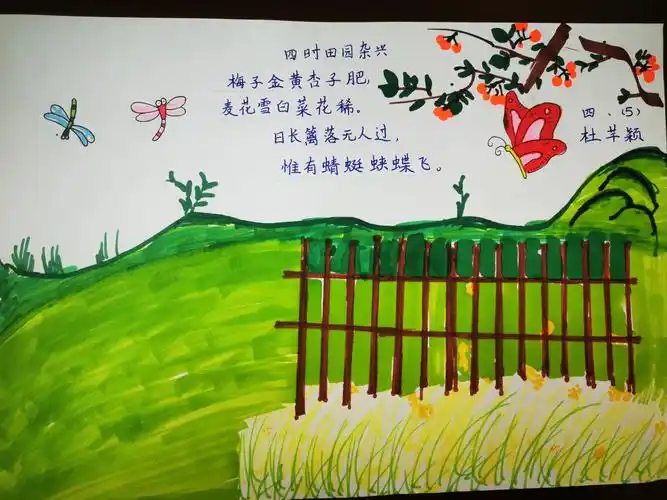 四时田园杂兴
梅子金黄杏子肥,
麦花雪白菜花稀。
日长篱落无人过,
惟有蜻蜓蛱蝶飞。
四、(5)
杜芊颖